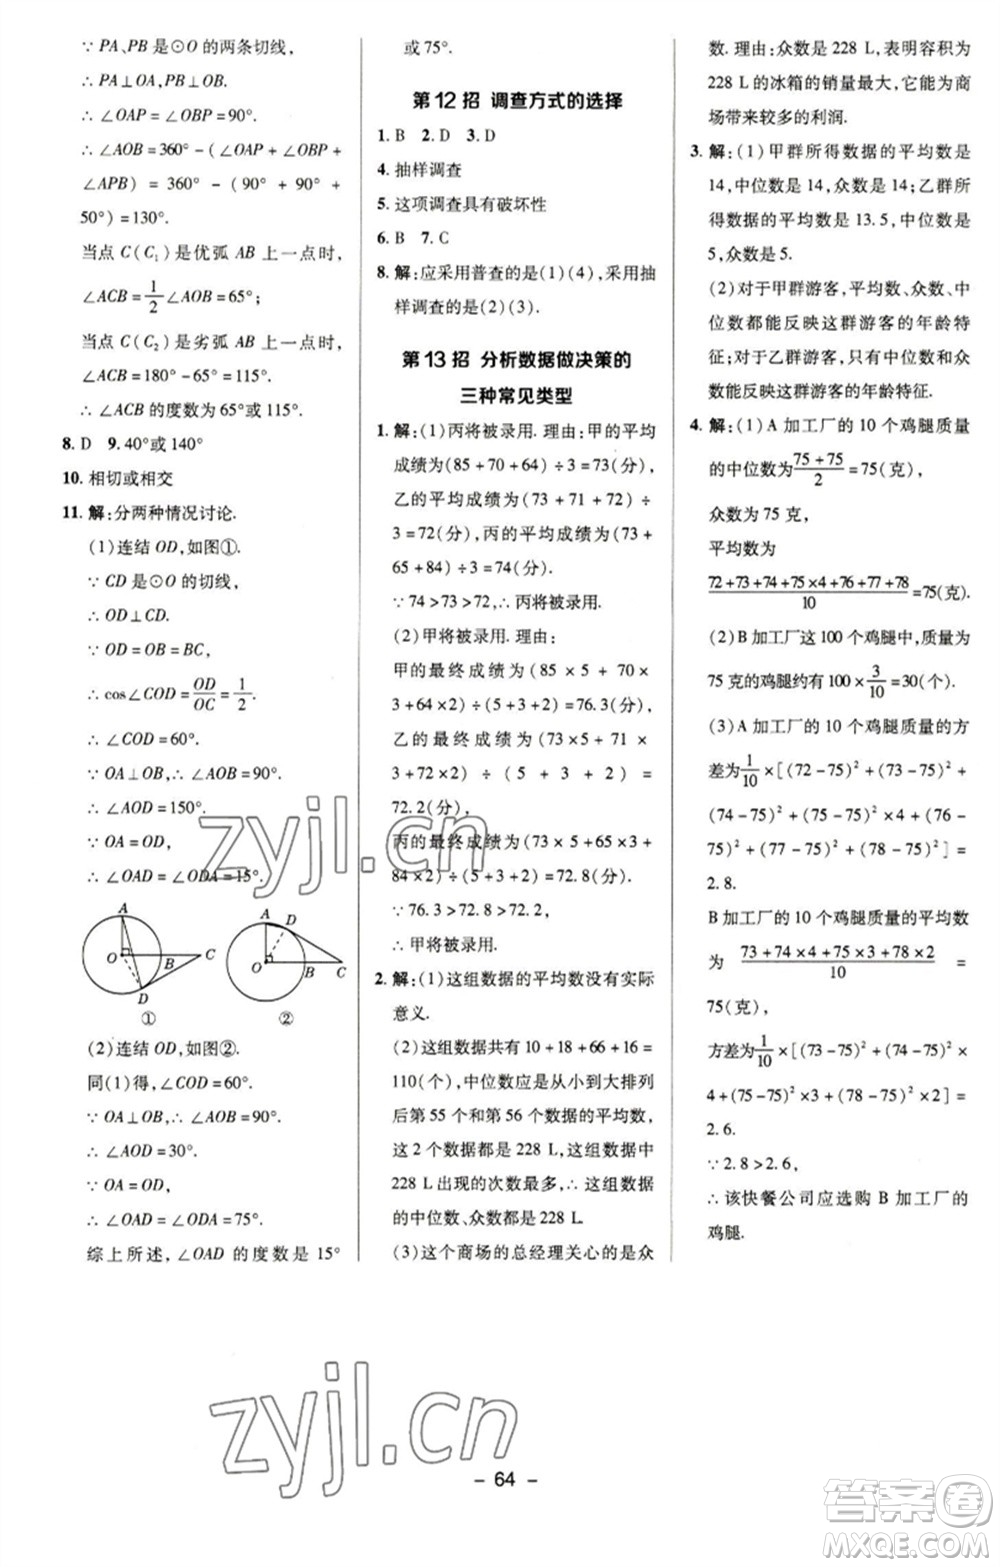 ∵ PA、PB 是⊙O 的两条切线,
∴ PA⊥OA,PB⊥OB.
∴ ∠OAP=∠OBP=90°.
∴ ∠AOB=360°-(∠OAP+∠OBP+
∠APB)=360°-(90°+90°+
50°)=130°.
当点 C(C₁)是优弧 AB 上一点时,
∠ACB=1/2∠AOB=65°;
当点 C(C₂)是劣弧 AB 上一点时,
∠ACB=180°-65°=115°.
∴ ∠ACB 的度数为 65°或 115°.
8. D 9. 40°或 140°
10. 相切或相交
11. 解:分两种情况讨论.
(1)连结 OD,如图①.
∵ CD 是⊙O 的切线,
∴ OD⊥CD.
∵ OD=OB=BC,
∴ cos∠COD=OD/OC=1/2.
∴ ∠COD=60°.
∵ OA⊥OB,∴ ∠AOB=90°.
∴ ∠AOD=150°.
∵ OA=OD,
∴ ∠OAD=∠ODA=15°.
A O B C D
①
A D O B C
②
(2)连结 OD,如图②.
同(1)得,∠COD=60°.
∵ OA⊥OB,∴ ∠AOB=90°.
∴ ∠AOD=30°.
∵ OA=OD,
∴ ∠OAD=∠ODA=75°.
综上所述,∠OAD 的度数是 15°
或 75°.
第 12 招 调查方式的选择
1. B 2. D 3. D
4. 抽样调查
5. 这项调查具有破坏性
6. B 7. C
8. 解:应采用普查的是(1)(4),采用抽
样调查的是(2)(3).
第 13 招 分析数据做决策的
三种常见类型
1. 解:(1)丙将被录用. 理由:甲的平均
成绩为(85+70+64)÷3=73(分),
乙的平均成绩为(73+71+72)÷
3=72(分),丙的平均成绩为(73+
65+84)÷3=74(分).
∵ 74>73>72,∴ 丙将被录用.
(2)甲将被录用. 理由:
甲的最终成绩为(85×5+70×
3+64×2)÷(5+3+2)=76.3(分),
乙的最终成绩为(73×5+71×3+
72×2)÷(5+3+2)=
72.2(分),
丙的最终成绩为(73×5+65×3+
84×2)÷(5+3+2)=72.8(分).
∵ 76.3>72.8>72.2,
∴ 甲将被录用.
2. 解:(1)这组数据的平均数没有实际
意义.
(2)这组数据共有 10+18+66+16=
110(个),中位数应是从小到大排列
后第 55 个和第 56 个数据的平均数,
这 2 个数据都是 228 L,这组数据中
228 L 出现的次数最多,所以这组数据
的中位数、众数都是 228 L.
(3)这个商场的总经理关心的是众
数. 理由:众数是 228 L,表明容积为
228 L 的冰箱的销量最大,它能为商
场带来较多的利润.
3. 解:(1)甲群所得数据的平均数是
14,中位数是 14,众数是 14;乙群所
得数据的平均数是 13.5,中位数是
5,众数是 5.
(2)对于甲群游客,平均数、众数、中
位数都能反映这群游客的年龄特
征;对于乙群游客,只有中位数和众
数能反映这群游客的年龄特征.
4. 解:(1)A 加工厂的 10 个鸡腿质量
的中位数为(75+75)/2=75(克),
众数为 75 克,
平均数为
(72+73+74+75×4+76+77+78)/10=75(克).
(2)B 加工厂这 100 个鸡腿中,质量为
75 克的鸡腿约有 100×3/10=30(个).
(3)A 加工厂的 10 个鸡腿质量的方
差为1/10×[(72-75)²+(73-75)²+
(74-75)²+(75-75)²×4+(76-
75)²+(77-75)²+(78-75)²]=
2.8.
B 加工厂的 10 个鸡腿质量的平均数
为(73+74×4+75×3+78×2)/10=
75(克),
方差为1/10×[(73-75)²+(74-75)²×
4+(75-75)²×3+(78-75)²×2]=
2.6.
∵ 2.8>2.6,
∴ 该快餐公司应选购 B 加工厂的
鸡腿.
zyjl.cn
zyjl.cn
- 64 -
答案圈
MXQE.COM